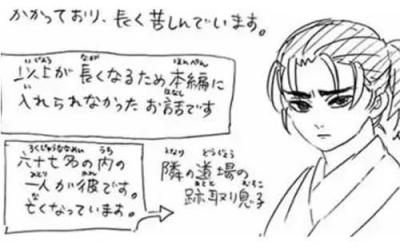 かかっており、長く苦しんでいます。
以上が長くなるため本編に
入れられなかったお話です
六十七名の内の
一人が彼です。
亡くなっています。
→隣の道場の
跡取り息子